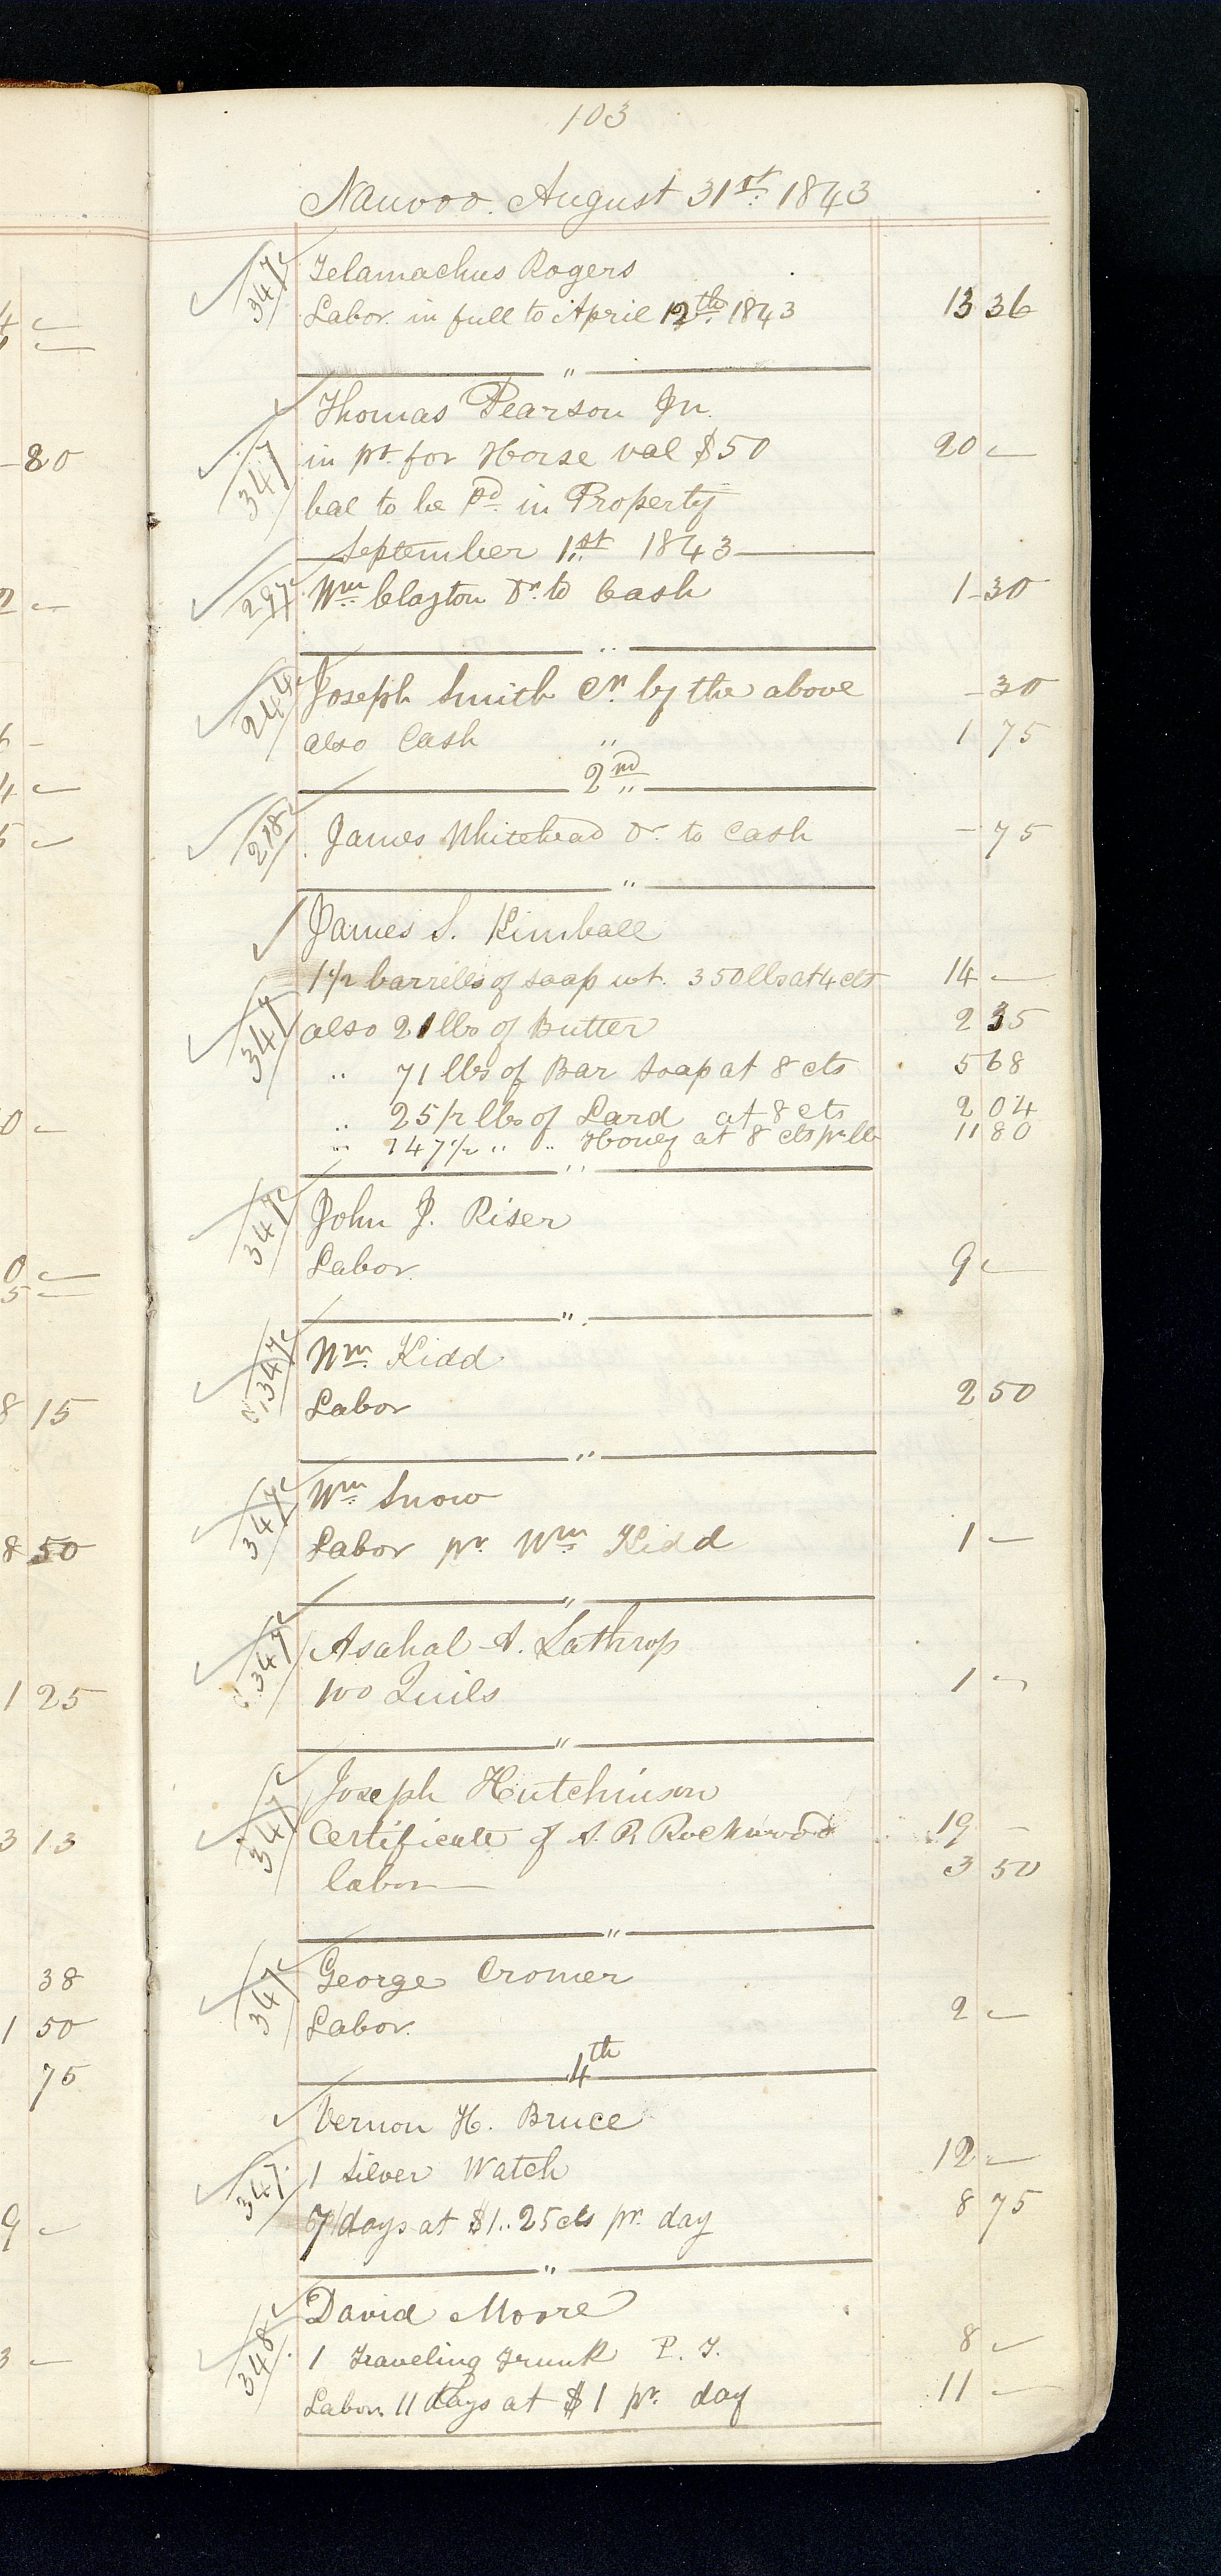 103
Nauvoo. August 31st. 1843
347 Telamachus Rogers
Labor in full to April 12th. 1843 13 36
"
Thomas Pearson Jn.
347 in pt. for Horse val $50 20 —
bal to be Pd. in Property
September 1st 1843
297 Wm. Clayton Dr. to Cash 1 - 30
"
246 Joseph Smith Cr. by the above - 30
also Cash " 1 75
2nd "
218 James Whitehead Dr. to Cash - 75
"
James S. Kimball
1 1/2 barrells of soap wt. 350 lbs at 4 cts 14 —
347 also 21 lbs of Butter 2 35
" 71 lbs of Bar soap at 8 cts 5 68
" 25 1/2 lbs of Lard at 8 cts 2 04
" 147 1/2 " " Honey at 8 cts pr lb 11 80
"
347 John J. Riser
Labor. 9 —
"
347 Wm. Kidd
Labor 2 50
"
347 Wm. Snow
Labor pr. Wm. Kidd 1 —
"
347 Asahal A. Lathrop
100 Quils 1 —
"
347 Joseph Hutchinson
Certificate of A. P. Rockwood 19 —
labor 3 50
"
347 George Cromer
Labor. 2 —
4th
Vernon H. Bruce
347 1 Silver Watch 12 —
7 days at $1.. 25 cts pr. day 8 75
"
David Moore
348 1 Traveling Trunk P. T. 8 —
Labor 11 days at $1 pr. day 11 —